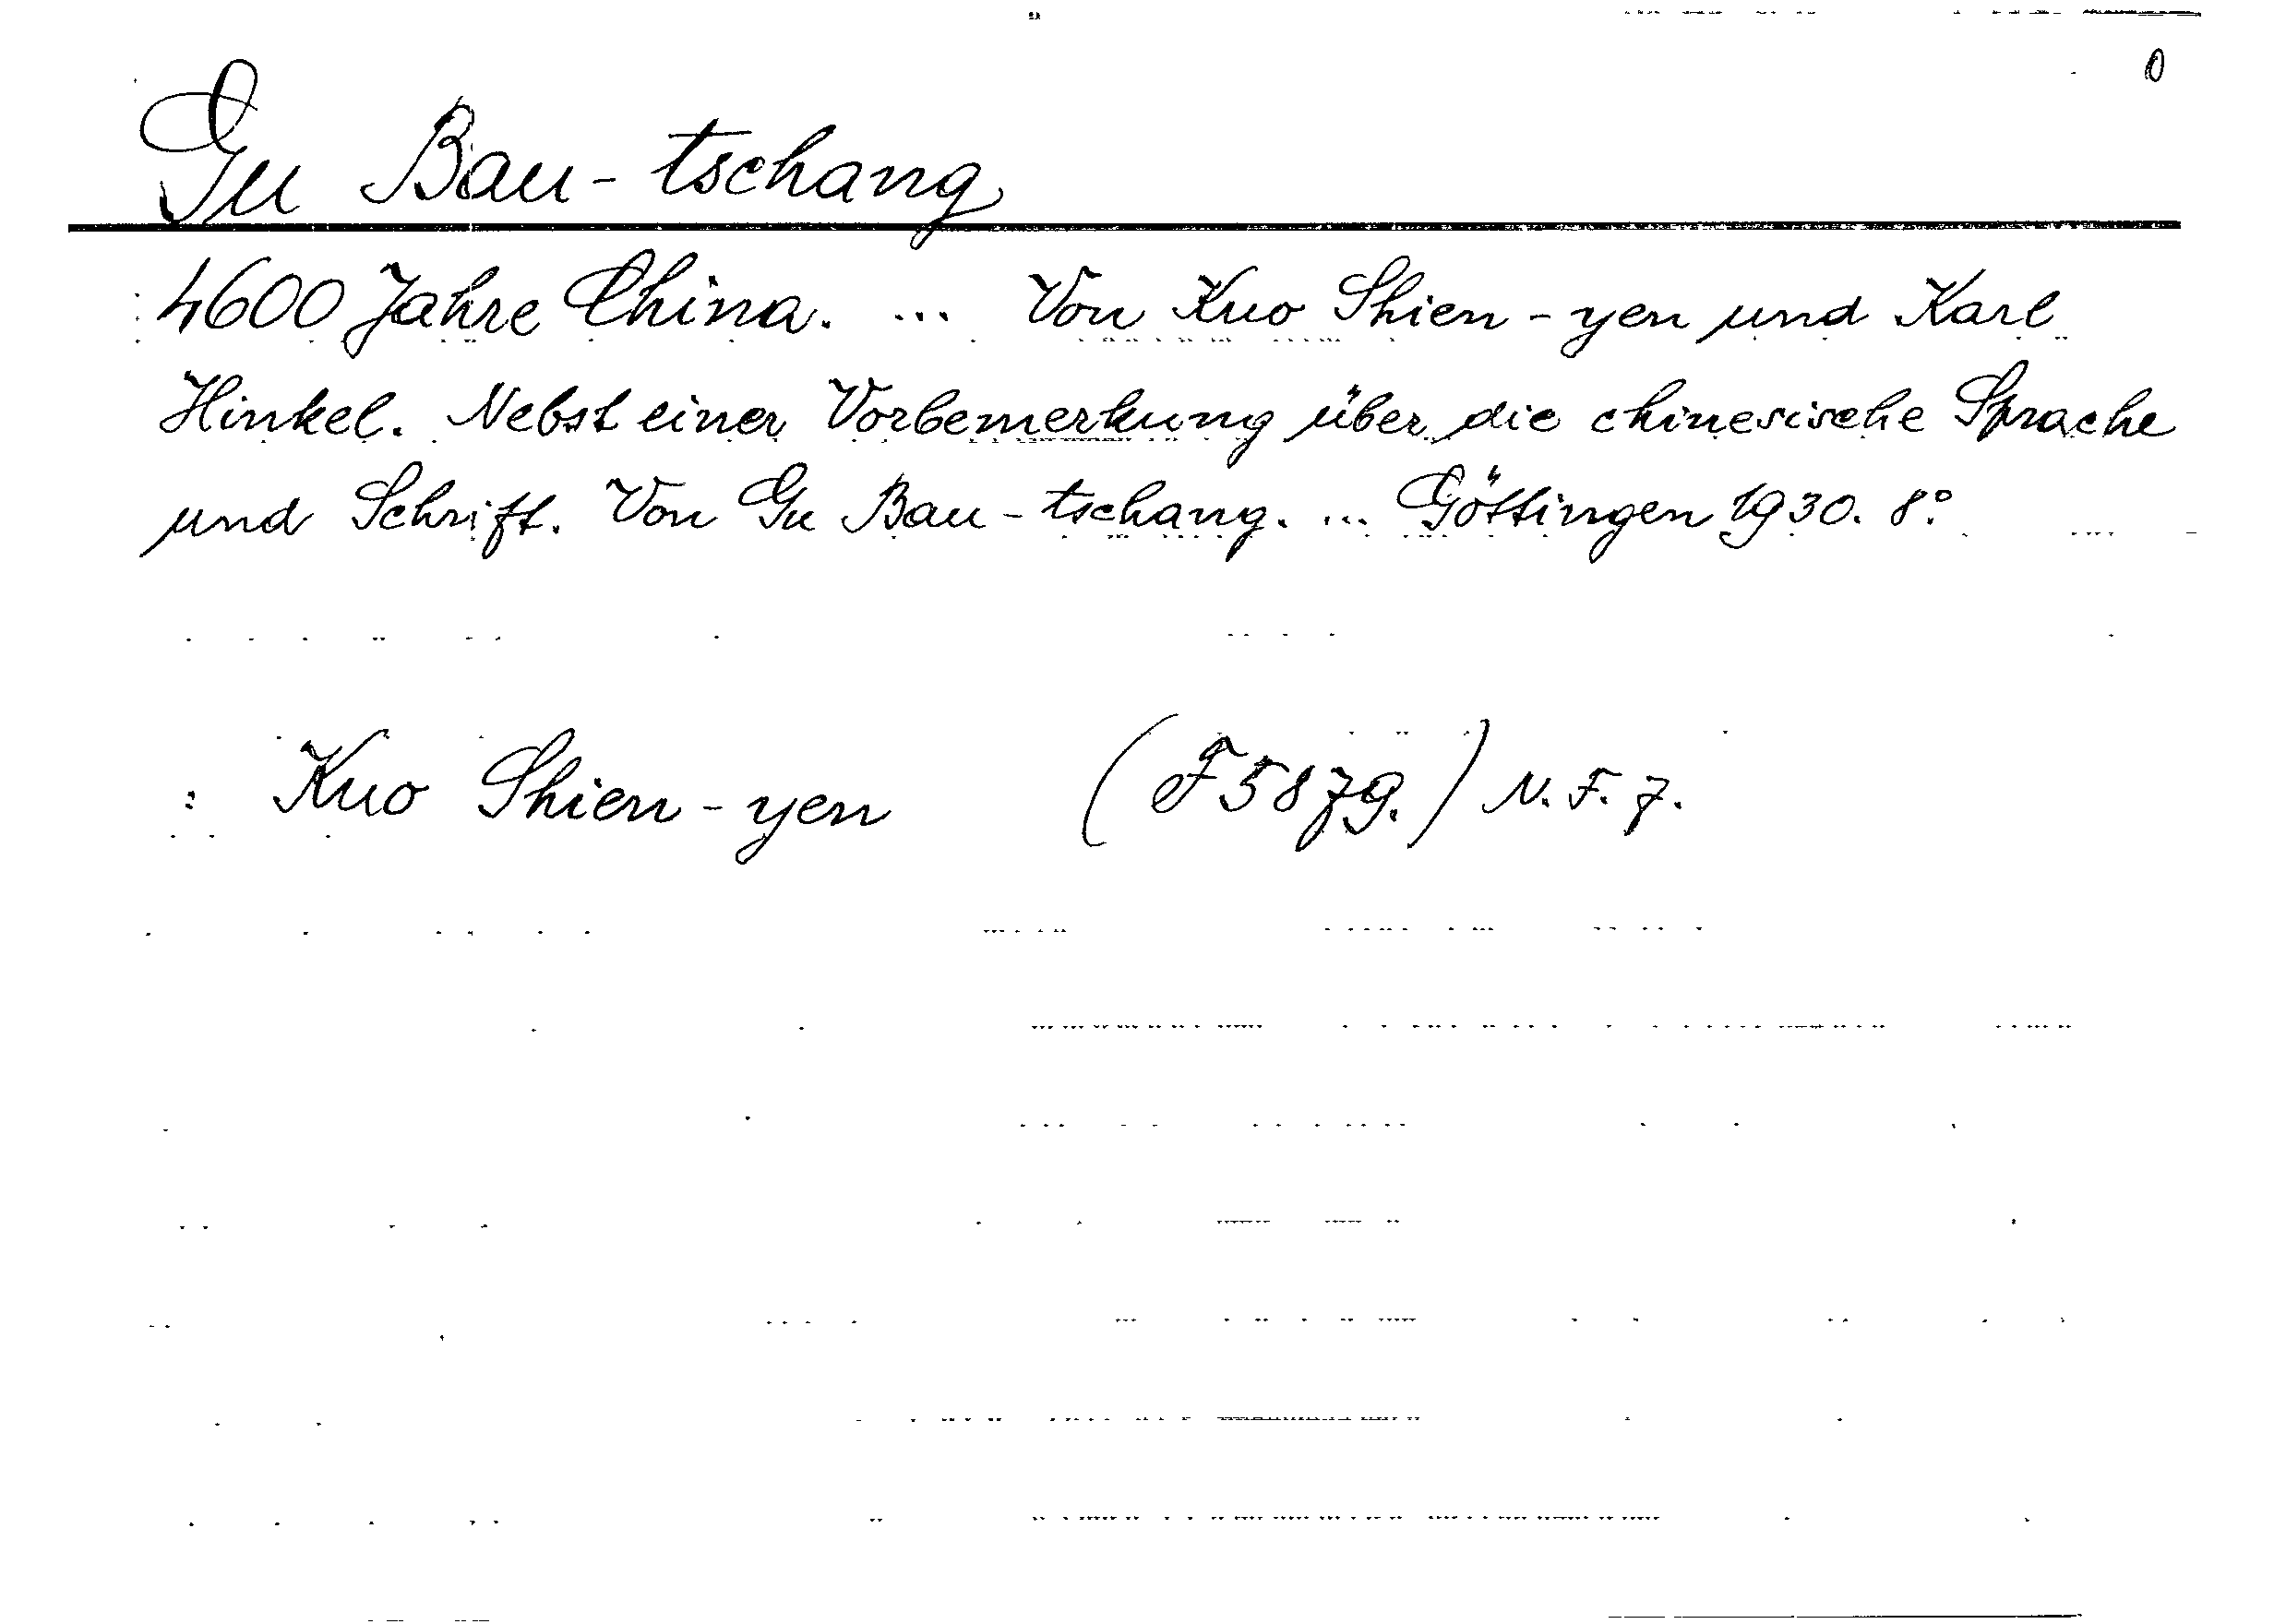 0
Gu Bau-tschang
4600 Jahre China. ... Von Kuo Shien-yen und Karl
Hinkel. Nebst einer Vorbemerkung über die chinesische Sprache
und Schrift. Von Gu Bau-tschang. ... Göttingen 1930. 8°.
: Kuo Shien-yen (F 58 79.) N. F. 7.